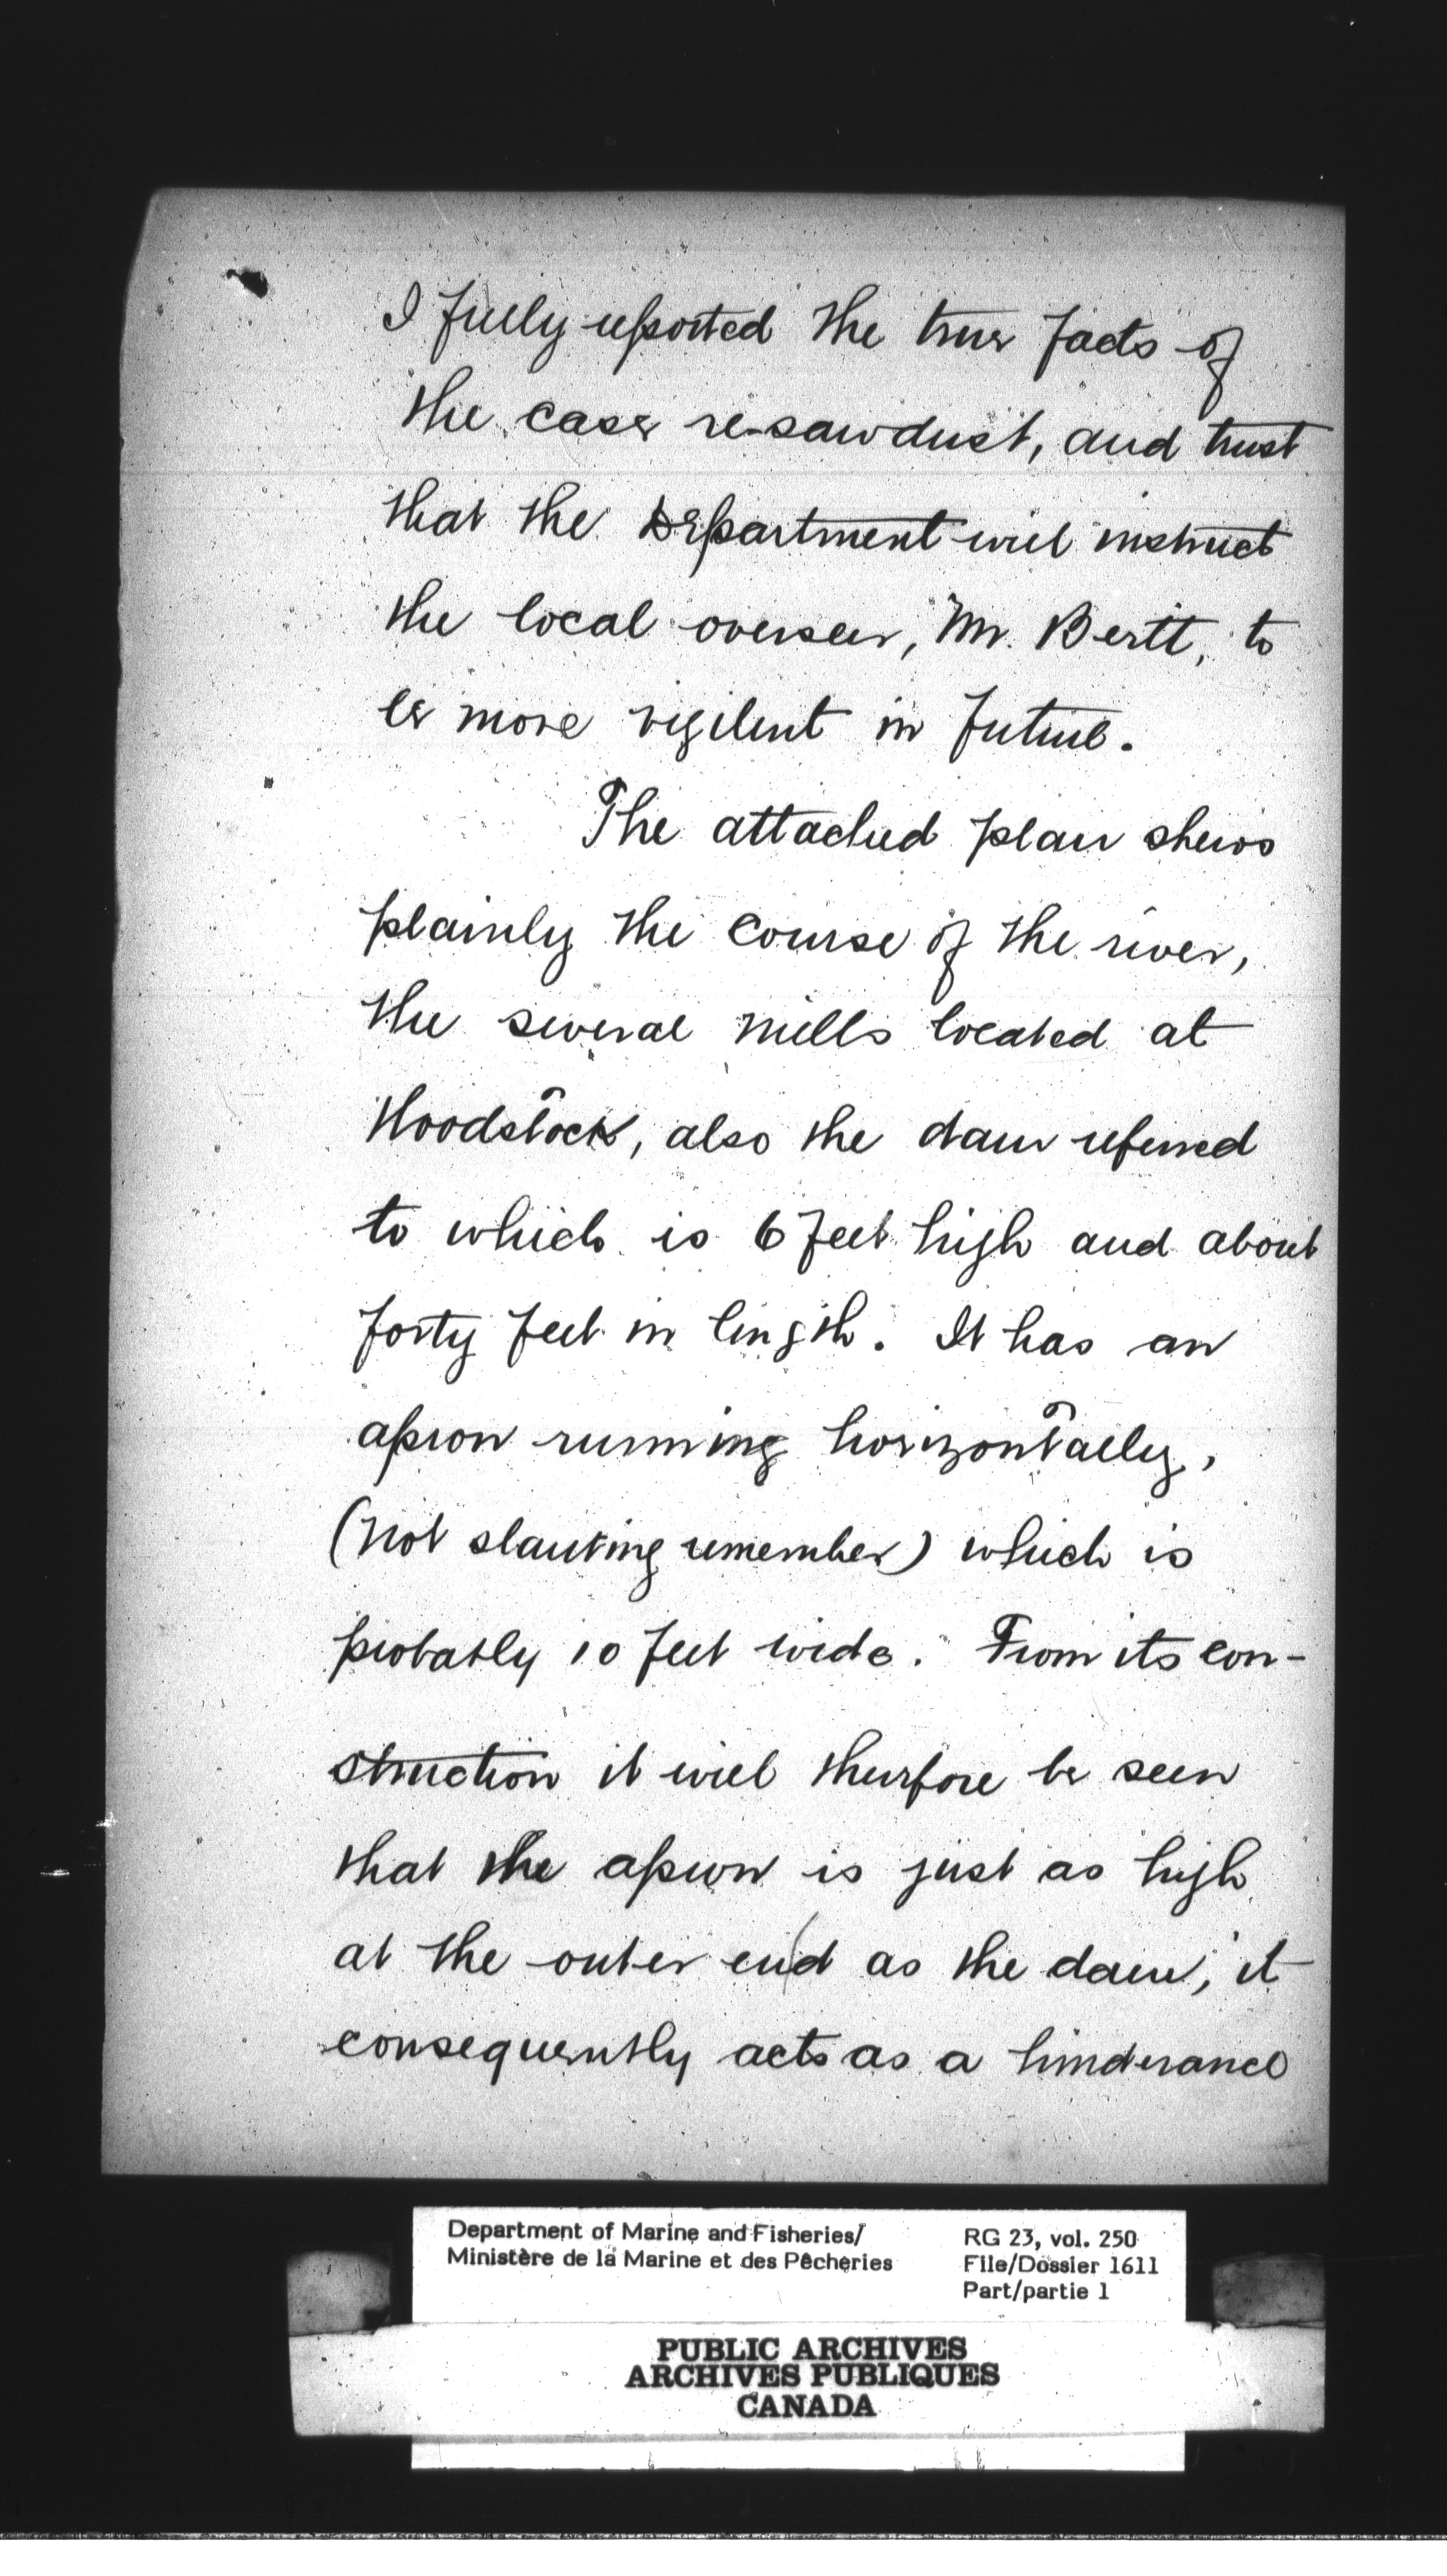 I fully reported the true facts of
the case re-sawdust, and trust
that the Department will instruct
the local overseer, Mr. Bertt, to
be more vigilent in future.
The attached plan shews
plainly the course of the river,
the several mills located at
Woodstock, also the dam referred
to which is 6 feet high and about
forty feet in length. It has an
apron running horizontally,
(not slanting remember) which is
probably 10 feet wide. From its con-
struction it will therfore be seen
that the apron is just as high
at the outer end as the dam; it
consequently acts as a hinderance
Department of Marine and Fisheries/
Ministère de la Marine et des Pêcheries
RG 23, vol. 250
File/Dossier 1611
Part/partie 1
PUBLIC ARCHIVES
ARCHIVES PUBLIQUES
CANADA